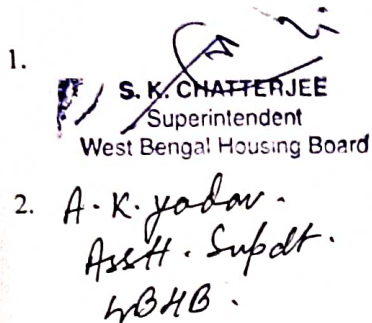 1.
S. K. CHATTERJEE
Superintendent
West Bengal Housing Board
2. A. K. yadav.
Asstt. Supdt.
WBHB.